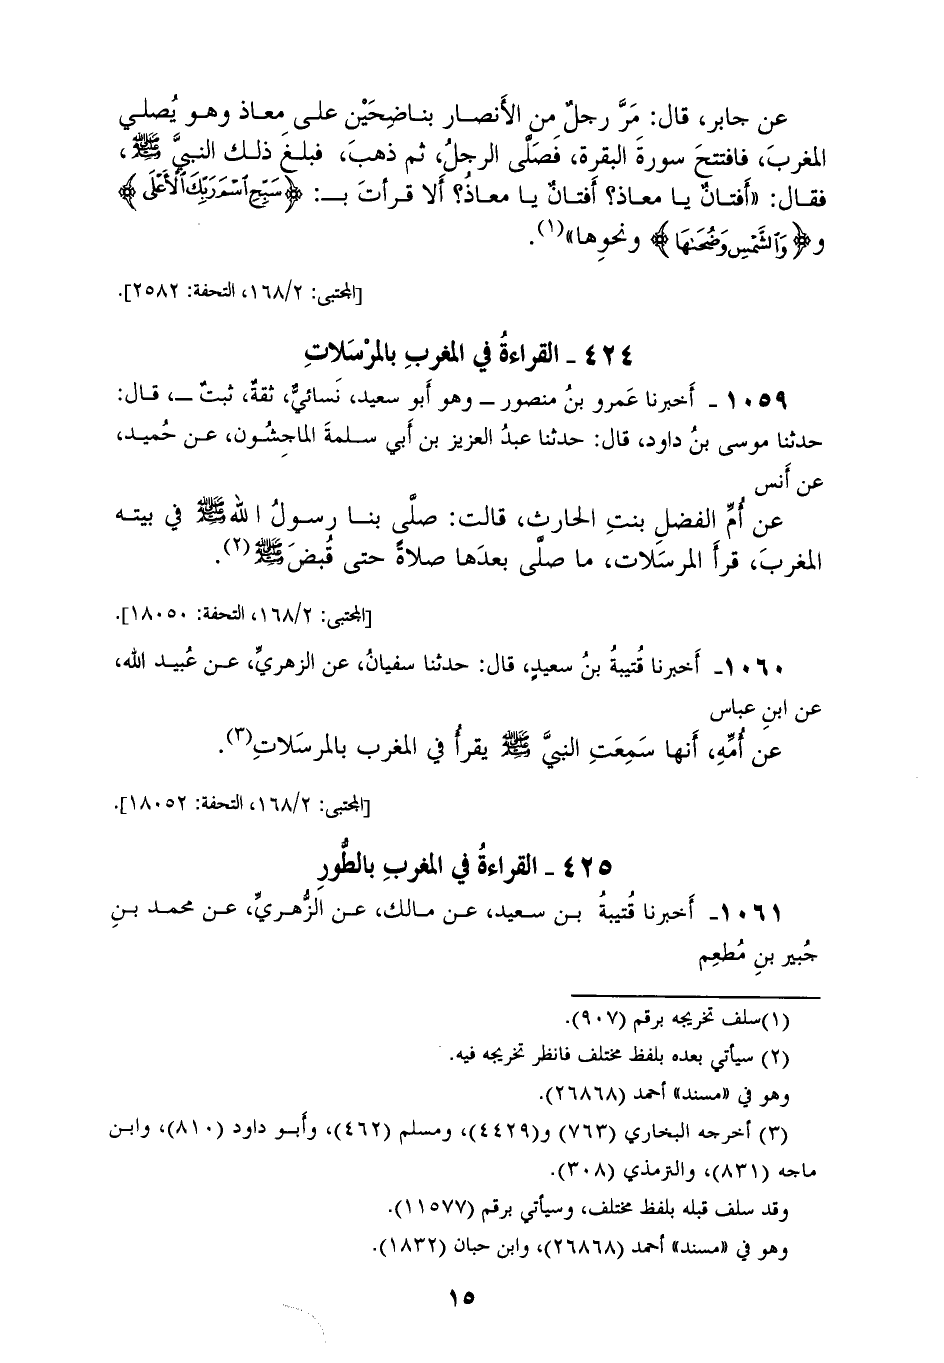 عن جابر، قال: مَرَّ رجلٌ مِن الأَنصار بناضِحَيْن على معاذ وهو يُصلي
المغربَ، فافتتحَ سورةَ البقرة، فصَلَّى الرجلُ، ثم ذهبَ، فبلغَ ذلك النبيَّ ﷺ،
فقال: «أَفتانٌ يا معاذ؟ أفتانٌ يا معاذُ؟ أَلا قرأتَ بـ: ﴿سَبِّحِ ٱسْمَ رَبِّكَ ٱلْأَعْلَى﴾
و﴿وَٱلشَّمْسِ وَضُحَىٰهَا﴾ ونحوِها»(١).
[المجتبى: ١٦٨/٢، التحفة: ٢٥٨٢].
٤٢٤ ـ القراءةُ في المغربِ بالمرْسَلاتِ
١٠٥٩ ـ أخبرنا عَمرو بنُ منصور ــ وهو أبو سعيد، نَسائيٌّ، ثقةٌ، ثبتٌ ــ، قال:
حدثنا موسى بنُ داود، قال: حدثنا عبدُ العزيز بن أبي سلمةَ الماجِشُون، عن حُميد،
عن أَنس
عن أُمِّ الفضلِ بنتِ الحارث، قالت: صلَّى بنا رسولُ اللهﷺ في بيته
المغربَ، قرأَ المرسَلات، ما صلَّى بعدَها صلاةً حتى قُبضَﷺ(٢).
[المجتبى: ١٦٨/٢، التحفة: ١٨٠٥٠].
١٠٦٠ـ أخبرنا قُتيبةُ بنُ سعيدٍ، قال: حدثنا سفيانُ، عن الزهريِّ، عن عُبيد الله،
عن ابنِ عباس
عن أُمِّهِ، أنها سَمِعَتِ النبيَّ ﷺ يقرأُ في المغرب بالمرسَلاتِ(٣).
[المجتبى: ١٦٨/٢، التحفة: ١٨٠٥٢].
٤٢٥ ـ القراءةُ في المغربِ بالطُّورِ
١٠٦١ـ أخبرنا قُتيبةُ بن سعيد، عن مالك، عن الزُّهريِّ، عن محمد بنِ
جُبير بنِ مُطعِم
(١)سلف تخريجه برقم (٩٠٧).
(٢) سيأتي بعده بلفظ مختلف فانظر تخريجه فيه.
وهو في «مسند» أحمد (٢٦٨٦٨).
(٣) أخرجه البخاري (٧٦٣) و(٤٤٢٩)، ومسلم (٤٦٢)، وأبو داود (٨١٠)، وابن
ماجه (٨٣١)، والترمذي (٣٠٨).
وقد سلف قبله بلفظ مختلف، وسيأتي برقم (١١٥٧٧).
وهو في «مسند» أحمد (٢٦٨٦٨)، وابن حبان (١٨٣٢).
١٥